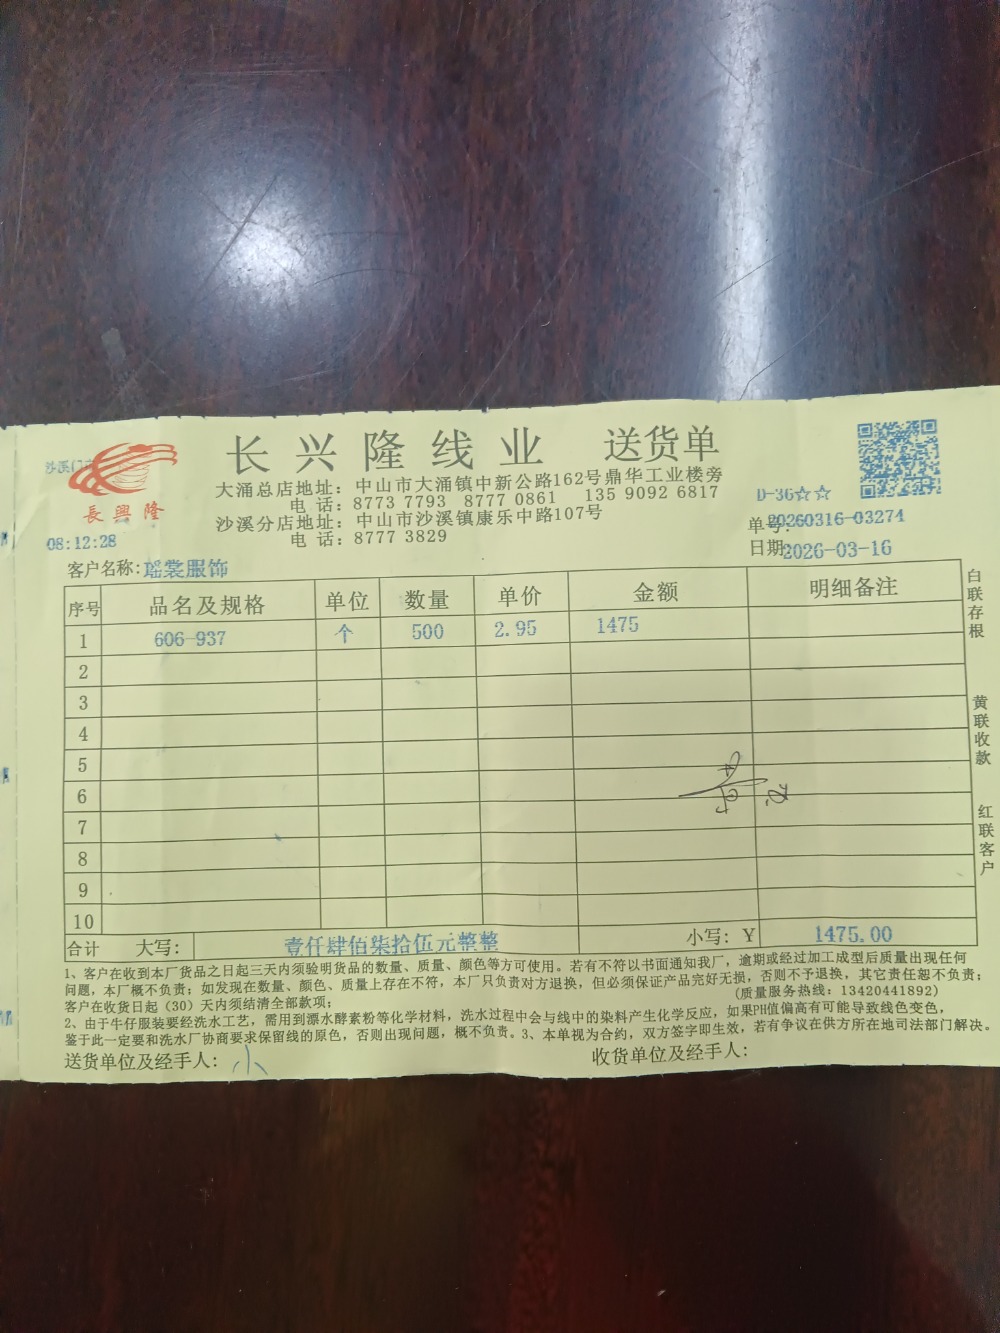 长兴隆线业 送货单
沙溪门
長興隆
大涌总店地址：中山市大涌镇中新公路162号鼎华工业楼旁
电 话：8773 7793 8777 0861 135 9092 6817
沙溪分店地址：中山市沙溪镇康乐中路107号
电 话：8777 3829
D-36☆☆
单号:20260316-03274
08:12:28
日期2026-03-16
客户名称:瑶裳服饰
序号 品名及规格 单位 数量 单价 金额 明细备注
1 606-937 个 500 2.95 1475
2
3
4
5
6
7
8
9
10
合计 大写: 壹仟肆佰柒拾伍元整整 小写: Y 1475.00
白联存根
黄联收款
红联客户
1、客户在收到本厂货品之日起三天内须验明货品的数量、质量、颜色等方可使用。若有不符以书面通知我厂，逾期或经过加工成型后质量出现任何
问题，本厂概不负责；如发现在数量、颜色、质量上存在不符，本厂只负责对方退换，但必须保证产品完好无损，否则不予退换，其它责任恕不负责；
客户在收货日起（30）天内须结清全部款项； (质量服务热线：13420441892)
2、由于牛仔服装要经洗水工艺，需用到漂水酵素粉等化学材料，洗水过程中会与线中的染料产生化学反应，如果PH值偏高有可能导致线色变色，
鉴于此一定要和洗水厂协商要求保留线的原色，否则出现问题，概不负责。3、本单视为合约，双方签字即生效，若有争议在供方所在地司法部门解决。
送货单位及经手人: 小
收货单位及经手人: